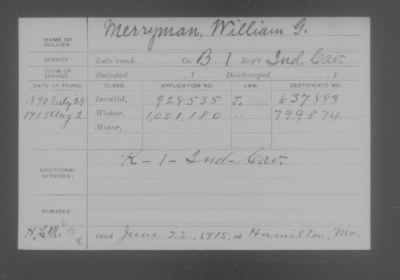 NAME OF SOLDIER: Merryman, William G.
SERVICE: Late rank, Co. B 1 Reg't Ind. Cav.
TERM OF SERVICE: Enlisted , 1 Discharged , 1
DATE OF FILING. CLASS. APPLICATION NO. LAW. CERTIFICATE NO.
1890 July 29 Invalid, 928535 J. 637888
1915 Aug 2 Widow, 1,051,180 O 799874
Minor,
ADDITIONAL SERVICES: K-1-Ind-Cav.
REMARKS:
Died June 25, 1915, at Hamilton, Mo.